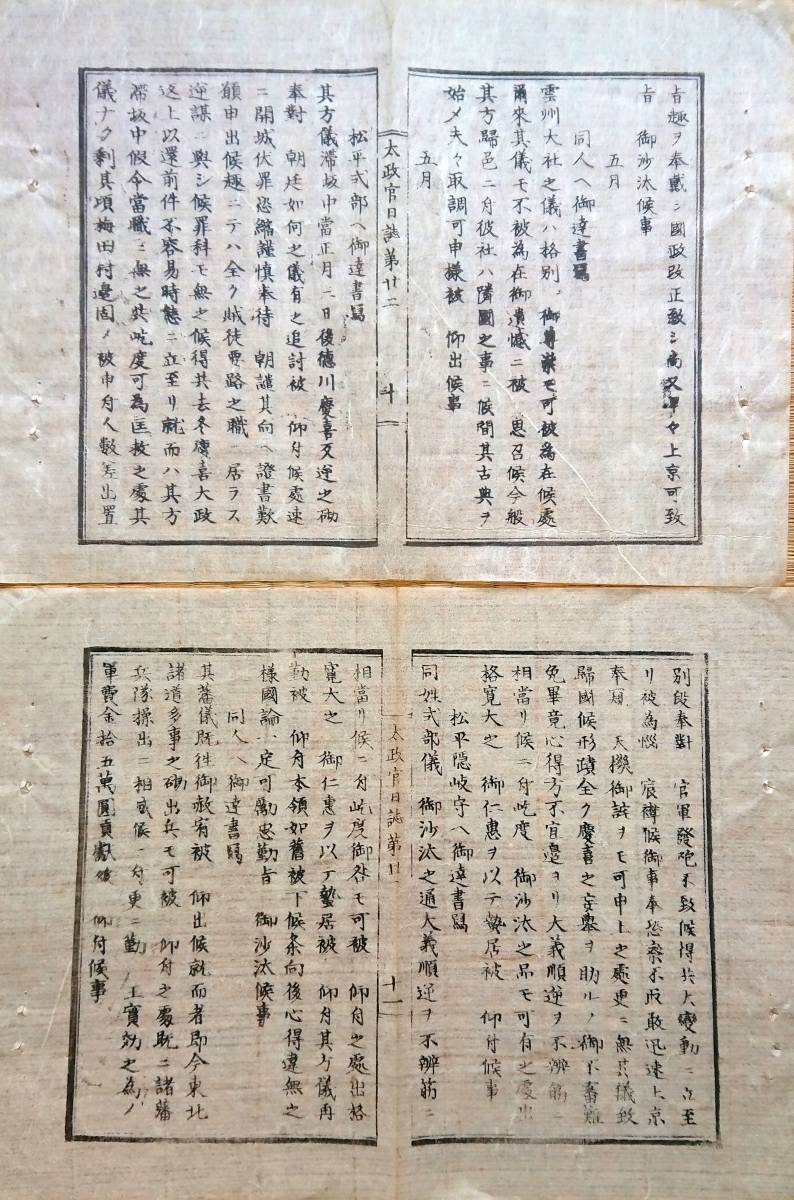 旨趣ヲ奉戴シ國政改正致シ尚又早々上京可致
旨　御沙汰候事
五月
同人ヘ御達書寫
雲州大社之儀ハ格別御尊崇モ可被為在候處
爾來其儀モ不被為在御遺憾ニ被　思召候今般
其方歸邑ニ付彼社ハ隣國之事ニ候間其古典ヲ
始メ夫々取調可申様被　仰出候事
五月
太政官日誌第廿二
十
松平式部ヘ御達書寫
其方儀滞坂中當正月二日後徳川慶喜反逆之砌
奉對　朝廷如何之儀有之追討被　仰付候處速
ニ開城伏罪恐縮謹慎奉待　朝譴其向ヘ證書歎
願申出候趣ニテハ全ク賊徒要路之職ニ居ラス
逆謀ニ與シ候罪科モ無之候得共去冬慶喜大政
返上以還前件不容易時態ニ立至リ就而ハ其方
滞坂中假令當職ニ無之共屹度可為匡救之處其
儀ナク剰其頃梅田村邊固メ被申付人數差出置
別段奉對　官軍發砲不致候得共大變動ニ立至
リ被為惱　宸襟候御事奉恐察不取敢迅速上京
奉窺　天機御詫ヲモ可申上之處更ニ無其儀致
歸國候形蹟全ク慶喜之妄擧ヲ助ルノ御不審難
免畢竟心得方不宜邊ヨリ大義順逆ヲ不辨筋
相當リ候ニ付屹度　御沙汰之品モ可有之處出
格寛大之　御仁惠ヲ以テ蟄居被　仰付候事
松平隠岐守ヘ御達書寫
同姓式部儀　御沙汰之通大義順逆ヲ不辨筋ニ
太政官日誌第廿
十一
相當リ候ニ付屹度御咎モ可被　仰付之處出格
寛大之　御仁惠ヲ以テ蟄居被　仰付其方儀再
勤被　仰付本領如舊被下候条向後心得違無之
様國論一定可勵忠勤旨　御沙汰候事
同人ヘ御達書寫
其藩儀既往御赦宥被　仰出候就而者即今東北
諸道多事之砌出兵モ可被　仰付之處既ニ諸藩
兵隊操出ニ相成候ニ付更ニ勤　王實効之為メ
軍費金拾五萬圓貢獻被　仰付候事